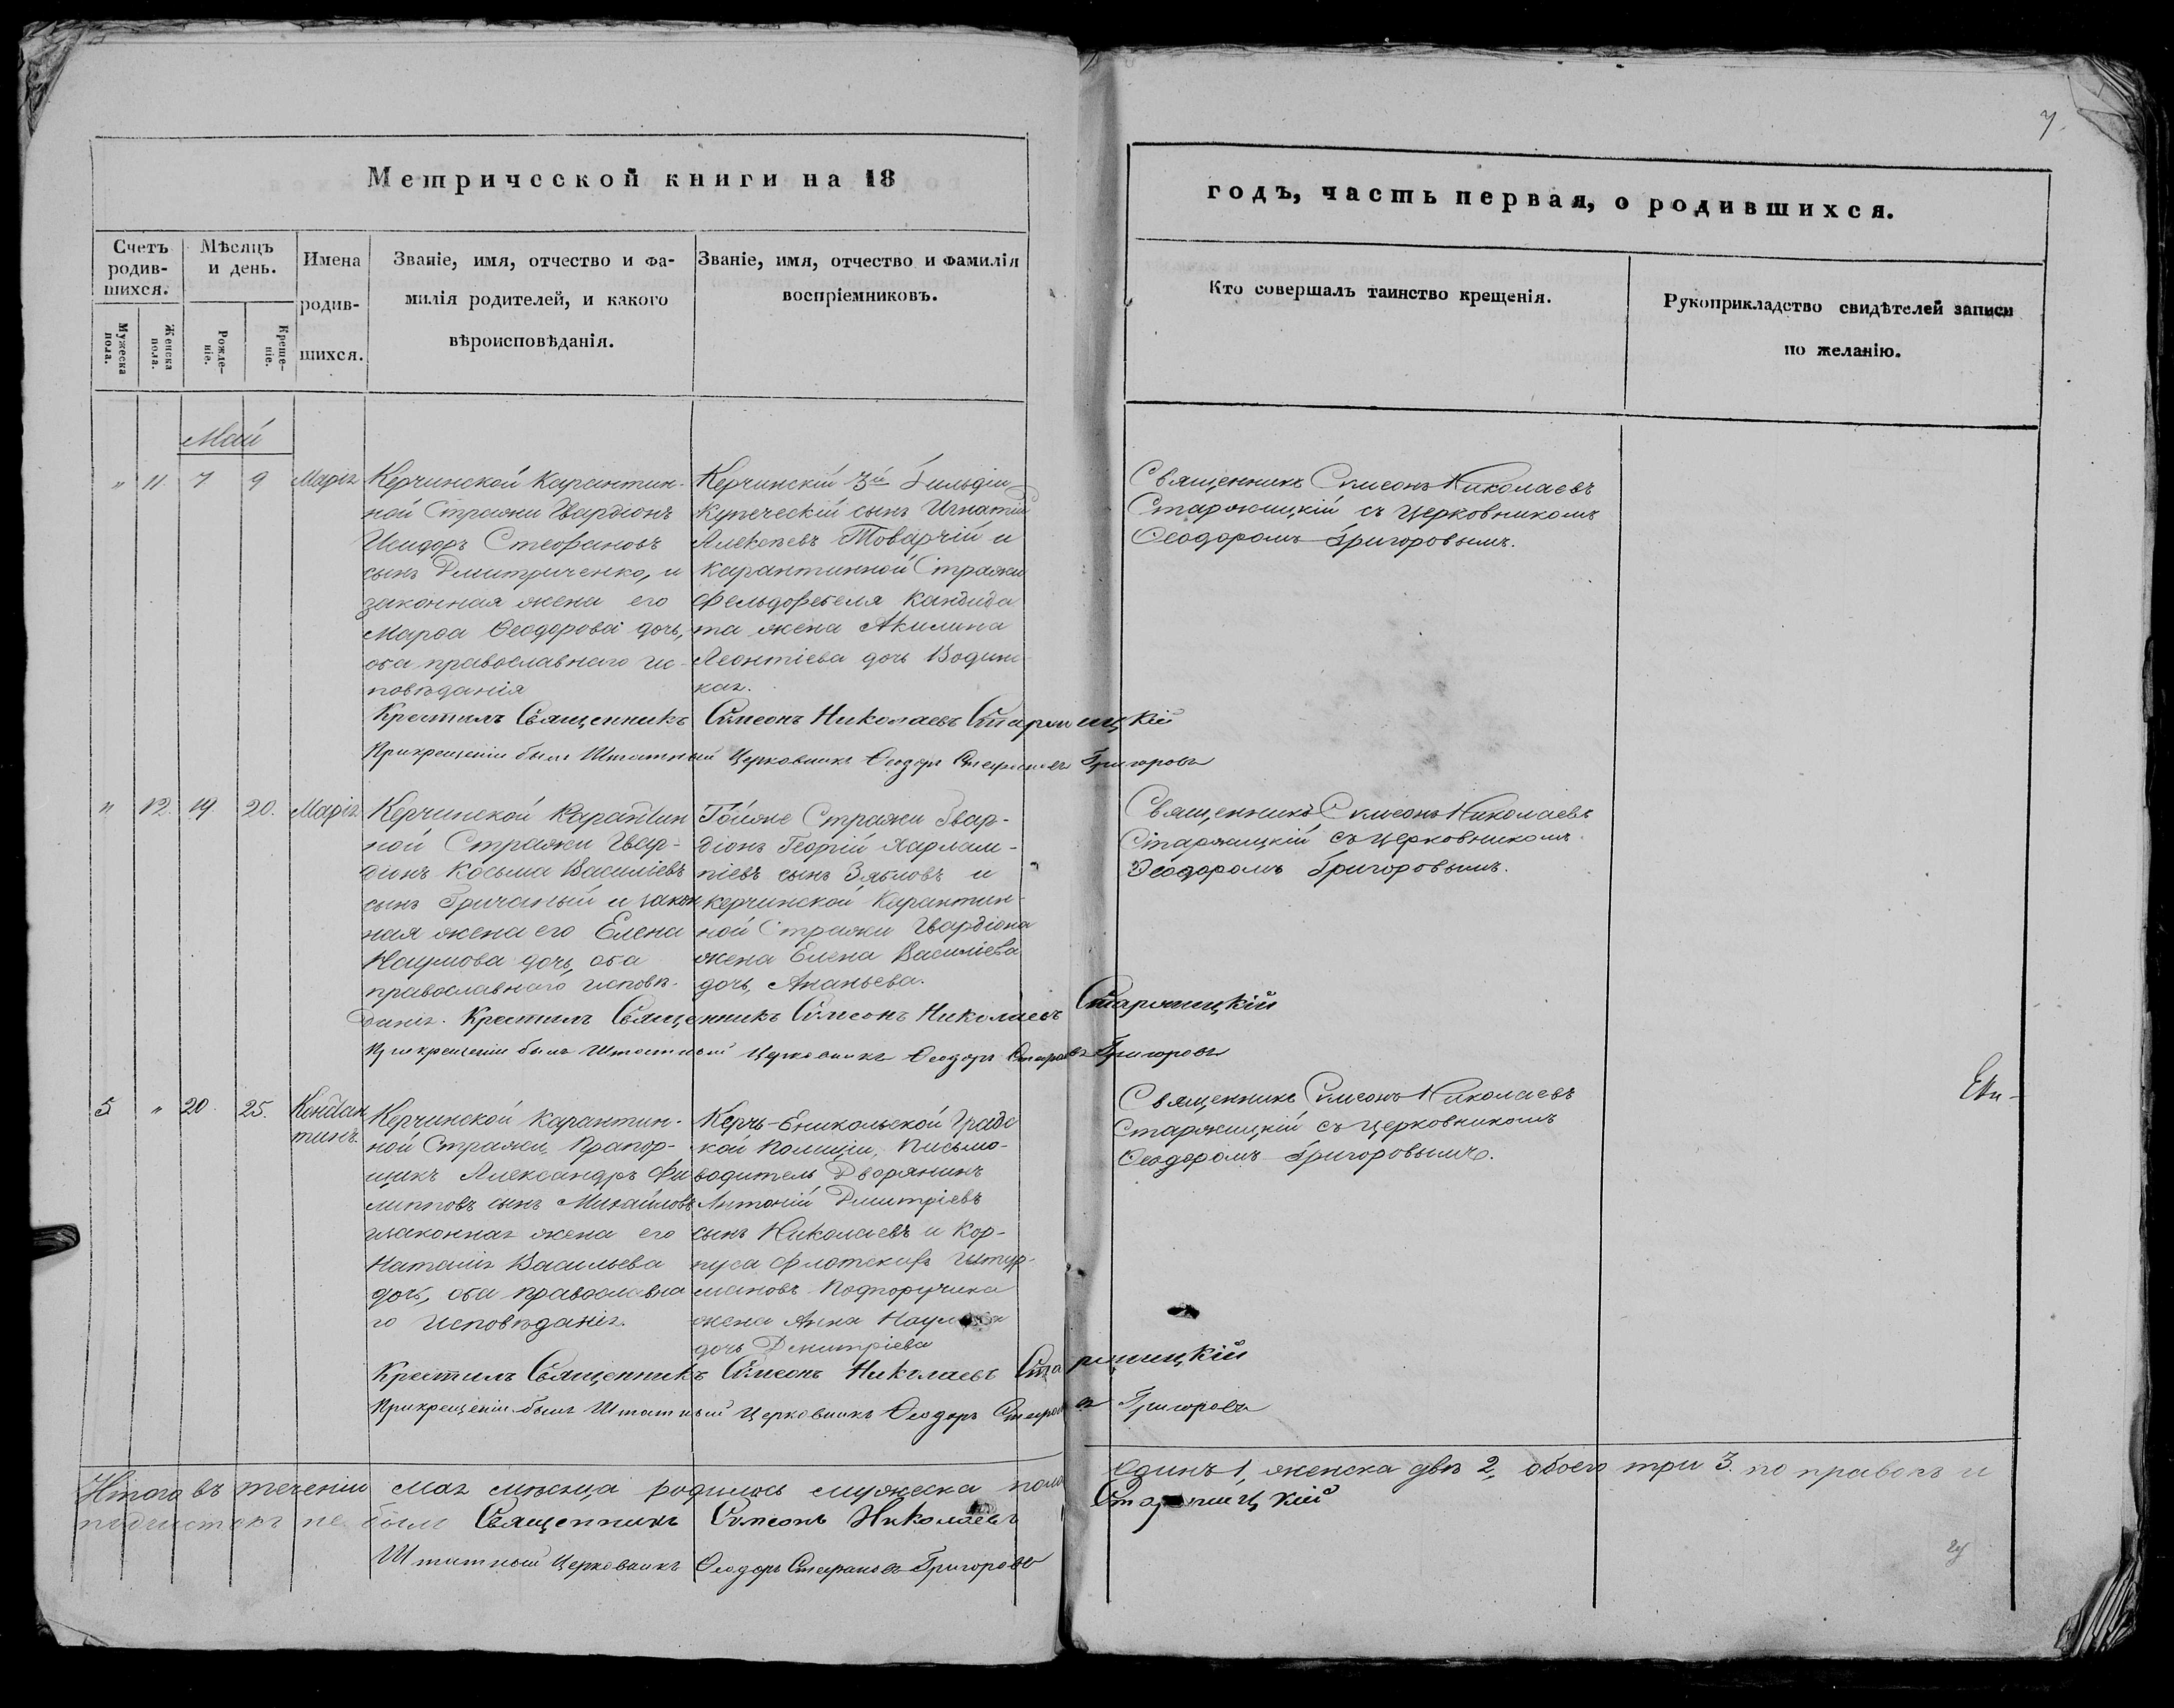 7.
Метрической книги на 18
годъ, часть первая, о родившихся.
Счетъ родив-шихся.
Мужеска пола.
Женска пола.
Мѣсяцъ и день.
Рожде-ніе.
Креще-ніе.
Имена родив-шихся.
Званіе, имя, отчество и фа-
милія родителей, и какого
вѣроисповѣданія.
Званіе, имя, отчество и фамилія
воспріемниковъ.
Кто совершалъ таинство крещенія.
Рукоприкладство свидѣтелей записи
по желанію.
Май
" 11 7 9 Марія
Керчинской Карантин-
ной Стражи Гвардіонъ
Исидоръ Стефановъ
сынъ Дмитриченко, и
законная жена его
Марѳа Ѳеодорова дочь,
оба православнаго ис-
повѣданія
Керчинскій 3й Гильдіи
Купеческій сынъ Игнатій
Алексѣевъ Товарчій и
Карантинной Стражи
фельдфебеля Кандида
та жена Акилина
Леонтіева дочь Водин
кая.
Священникъ Симеонъ Николаевъ
Старжицкій съ Церковникомъ
Ѳеодоромъ Григоровымъ.
Крестилъ Священникъ Симеонъ Николаевъ Старжицкій
При крещеніи былъ Штатный Церковникъ Ѳеодоръ Стефановъ Григоровъ
" 12. 19. 20. Марія
Керчинской Карантин
ной Стражи Гвар-
діонъ Косьма Василіевъ
сынъ Гричаный и закон
ная жена его Елена
Наумова дочь, оба
православнаго исповѣ-
данія.
Тойже Стражи Гвар-
діонъ Георгій Харлам-
піевъ сынъ Зябловъ и
Керчинской Карантин-
ной Стражи Гвардіона
жена Елена Василіева
дочь, Ананьева.
Священникъ Симеонъ Николаевъ
Старжицкій съ Церковникомъ
Ѳеодоромъ Григоровымъ.
Крестилъ Священникъ Симеонъ Николаевъ Старжицкій
При крещеніи былъ Штатный Церковникъ Ѳеодоръ Стефановъ Григоровъ
5 " 20. 25. Констан
тинъ.
Керчинской Карантин-
ной Стражи, Прапор-
щикъ Александръ Фи
липповъ сынъ Михайловъ
и законная жена его
Наталія Васильева
дочь, оба православна
го исповѣданія.
Керчь-Еникольской Градс
кой Полиціи, Письмо-
водитель Дворянинъ
Антоній Дмитріевъ
сынъ Николаевъ и Кор-
пуса флотскихъ Штур-
мановъ Подпоручика
жена Анна
дочь Демитріева
Священникъ Симеонъ Николаевъ
Старжицкій съ Церковникомъ
Ѳеодоромъ Григоровымъ.
Крестилъ Священникъ Симеонъ Николаевъ Старжицкій
При крещеніи былъ Штатный Церковникъ Ѳеодоръ Стефановъ Григоровъ
Итого въ теченіи мая мѣсяца родилось мужеска пола единъ 1, женска двѣ 2, обоего три 3. поправокъ и
подчистокъ не было Священникъ Симеонъ Николаевъ Старжицкій
Штатный Церковникъ Ѳеодоръ Стефановъ Григоровъ